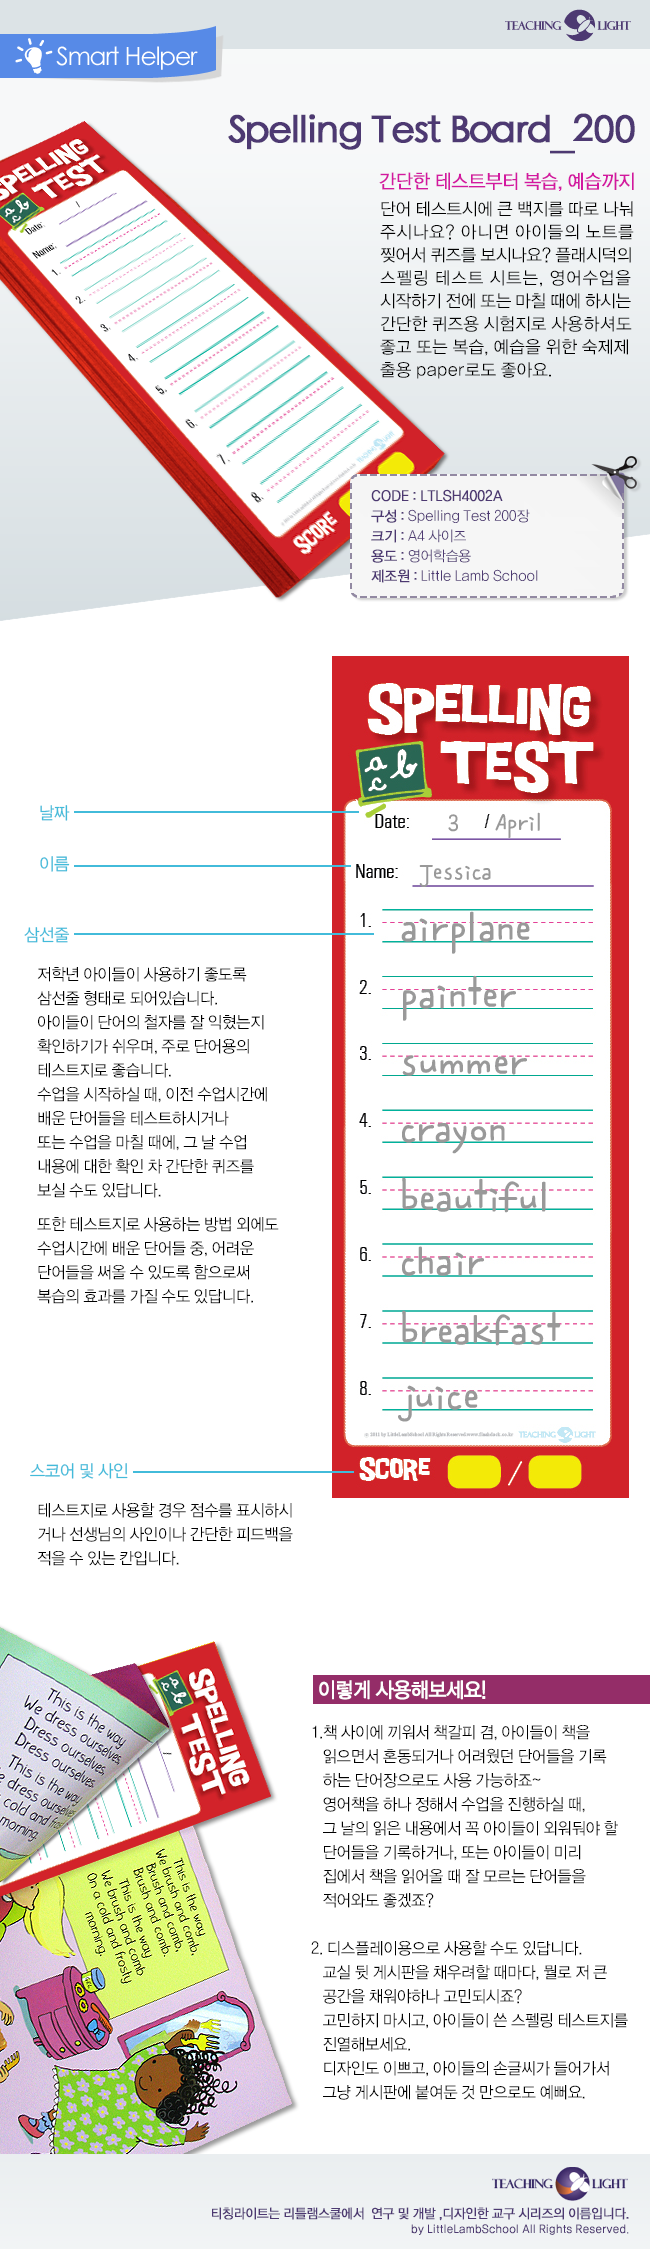 TEACHING LIGHT
Smart Helper
Spelling Test Board_200
간단한 테스트부터 복습, 예습까지
단어 테스트시에 큰 백지를 따로 나눠
주시나요? 아니면 아이들의 노트를
찢어서 퀴즈를 보시나요? 플래시덕의
스펠링 테스트 시트는, 영어수업을
시작하기 전에 또는 마칠 때에 하시는
간단한 퀴즈용 시험지로 사용하셔도
좋고 또는 복습, 예습을 위한 숙제제
출용 paper로도 좋아요.
SPELLING
TEST
a b c
Date: /
Name:
1.
2.
3.
4.
5.
6.
7.
8.
SCORE
CODE : LTLSH4002A
구성 : Spelling Test 200장
크기 : A4 사이즈
용도 : 영어학습용
제조원 : Little Lamb School
SPELLING
TEST
a b c
날짜
Date: 3 / April
이름
Name: Jessica
삼선줄
1. airplane
2. painter
3. summer
4. crayon
5. beautiful
6. chair
7. breakfast
8. juice
저학년 아이들이 사용하기 좋도록
삼선줄 형태로 되어있습니다.
아이들이 단어의 철자를 잘 익혔는지
확인하기가 쉬우며, 주로 단어용의
테스트지로 좋습니다.
수업을 시작하실 때, 이전 수업시간에
배운 단어들을 테스트하시거나
또는 수업을 마칠 때에, 그 날 수업
내용에 대한 확인 차 간단한 퀴즈를
보실 수도 있답니다.
또한 테스트지로 사용하는 방법 외에도
수업시간에 배운 단어들 중, 어려운
단어들을 써올 수 있도록 함으로써
복습의 효과를 가질 수도 있답니다.
TEACHING LIGHT
스코어 및 사인
SCORE /
테스트지로 사용할 경우 점수를 표시하시
거나 선생님의 사인이나 간단한 피드백을
적을 수 있는 칸입니다.
This is the way
We dress ourselves,
Dress ourselves,
Dress ourselves.
This is the way
dress ourselves
cold and frosty
morning.
SPELLING
TEST
a b c
This is the way
We brush and comb,
Brush and comb,
Brush and comb.
This is the way
We brush and comb
On a cold and frosty
morning.
이렇게 사용해보세요!
1.책 사이에 끼워서 책갈피 겸, 아이들이 책을
읽으면서 혼동되거나 어려웠던 단어들을 기록
하는 단어장으로도 사용 가능하죠~
영어책을 하나 정해서 수업을 진행하실 때,
그 날의 읽은 내용에서 꼭 아이들이 외워둬야 할
단어들을 기록하거나, 또는 아이들이 미리
집에서 책을 읽어올 때 잘 모르는 단어들을
적어와도 좋겠죠?
2. 디스플레이용으로 사용할 수도 있답니다.
교실 뒷 게시판을 채우려할 때마다, 뭘로 저 큰
공간을 채워야하나 고민되시죠?
고민하지 마시고, 아이들이 쓴 스펠링 테스트지를
진열해보세요.
디자인도 이쁘고, 아이들의 손글씨가 들어가서
그냥 게시판에 붙여둔 것 만으로도 예뻐요.
TEACHING LIGHT
티칭라이트는 리틀램스쿨에서 연구 및 개발 ,디자인한 교구 시리즈의 이름입니다.
by LittleLambSchool All Rights Reserved.